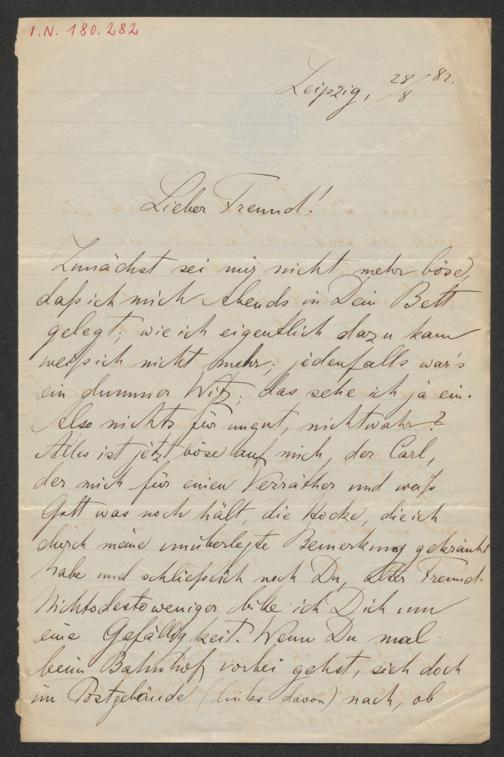 I.N. 180.282
Leipzig, 28/8 82.
Lieber Freund!
Zunächst sei mir nicht mehr böse,
daß ich mich Abends in Dein Bett
gelegt; wie ich eigentlich dazu kam
weiß ich nicht mehr; jedenfalls war's
ein dummer Witz; das sehe ich ja ein.
Also nichts für ungut, nichtwahr?
Alles ist jetzt böse auf mich, der Carl,
der mich für einen Verräther und weiß
Gott was noch hält, die Hocke, die ich
durch meine unüberlegte Bemerkung gekränkt
habe und schließlich noch Du, alter Freund.
Nichtsdestoweniger bitte ich Dich um
eine Gefälligkeit. Wenn Du mal
beim Bahnhof vorbei gehst, sieh doch
im Postgebäude (links davon) nach, ob